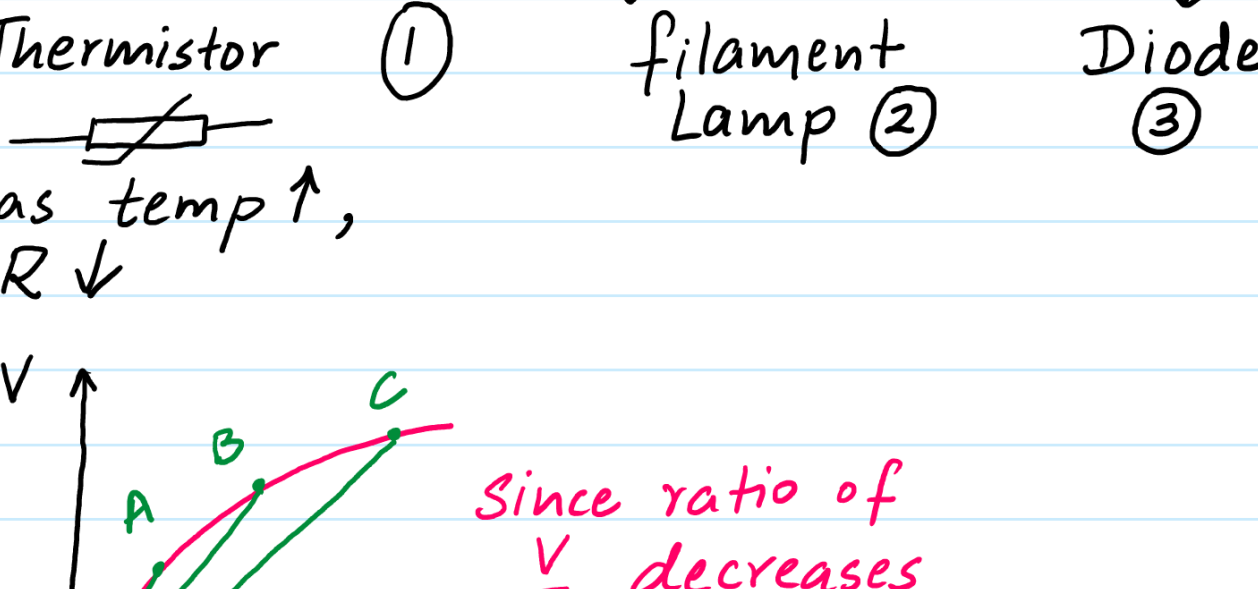 Thermistor ① filament Diode
Lamp ② ③
as temp ↑,
R ↓
V
C
B
A
Since ratio of
V decreases